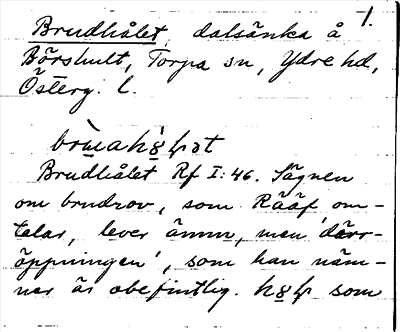 1.
Brudhålet, dalsänka å
Börshult, Torpa sn, Ydre hd,
Österg. l.
Brudhålet Rf I: 46. Sägnen
om brudrov, som Rääf om-
talar, lever ännu, men 'dörr-
öppningen', som han näm-
ner är obefintlig. som